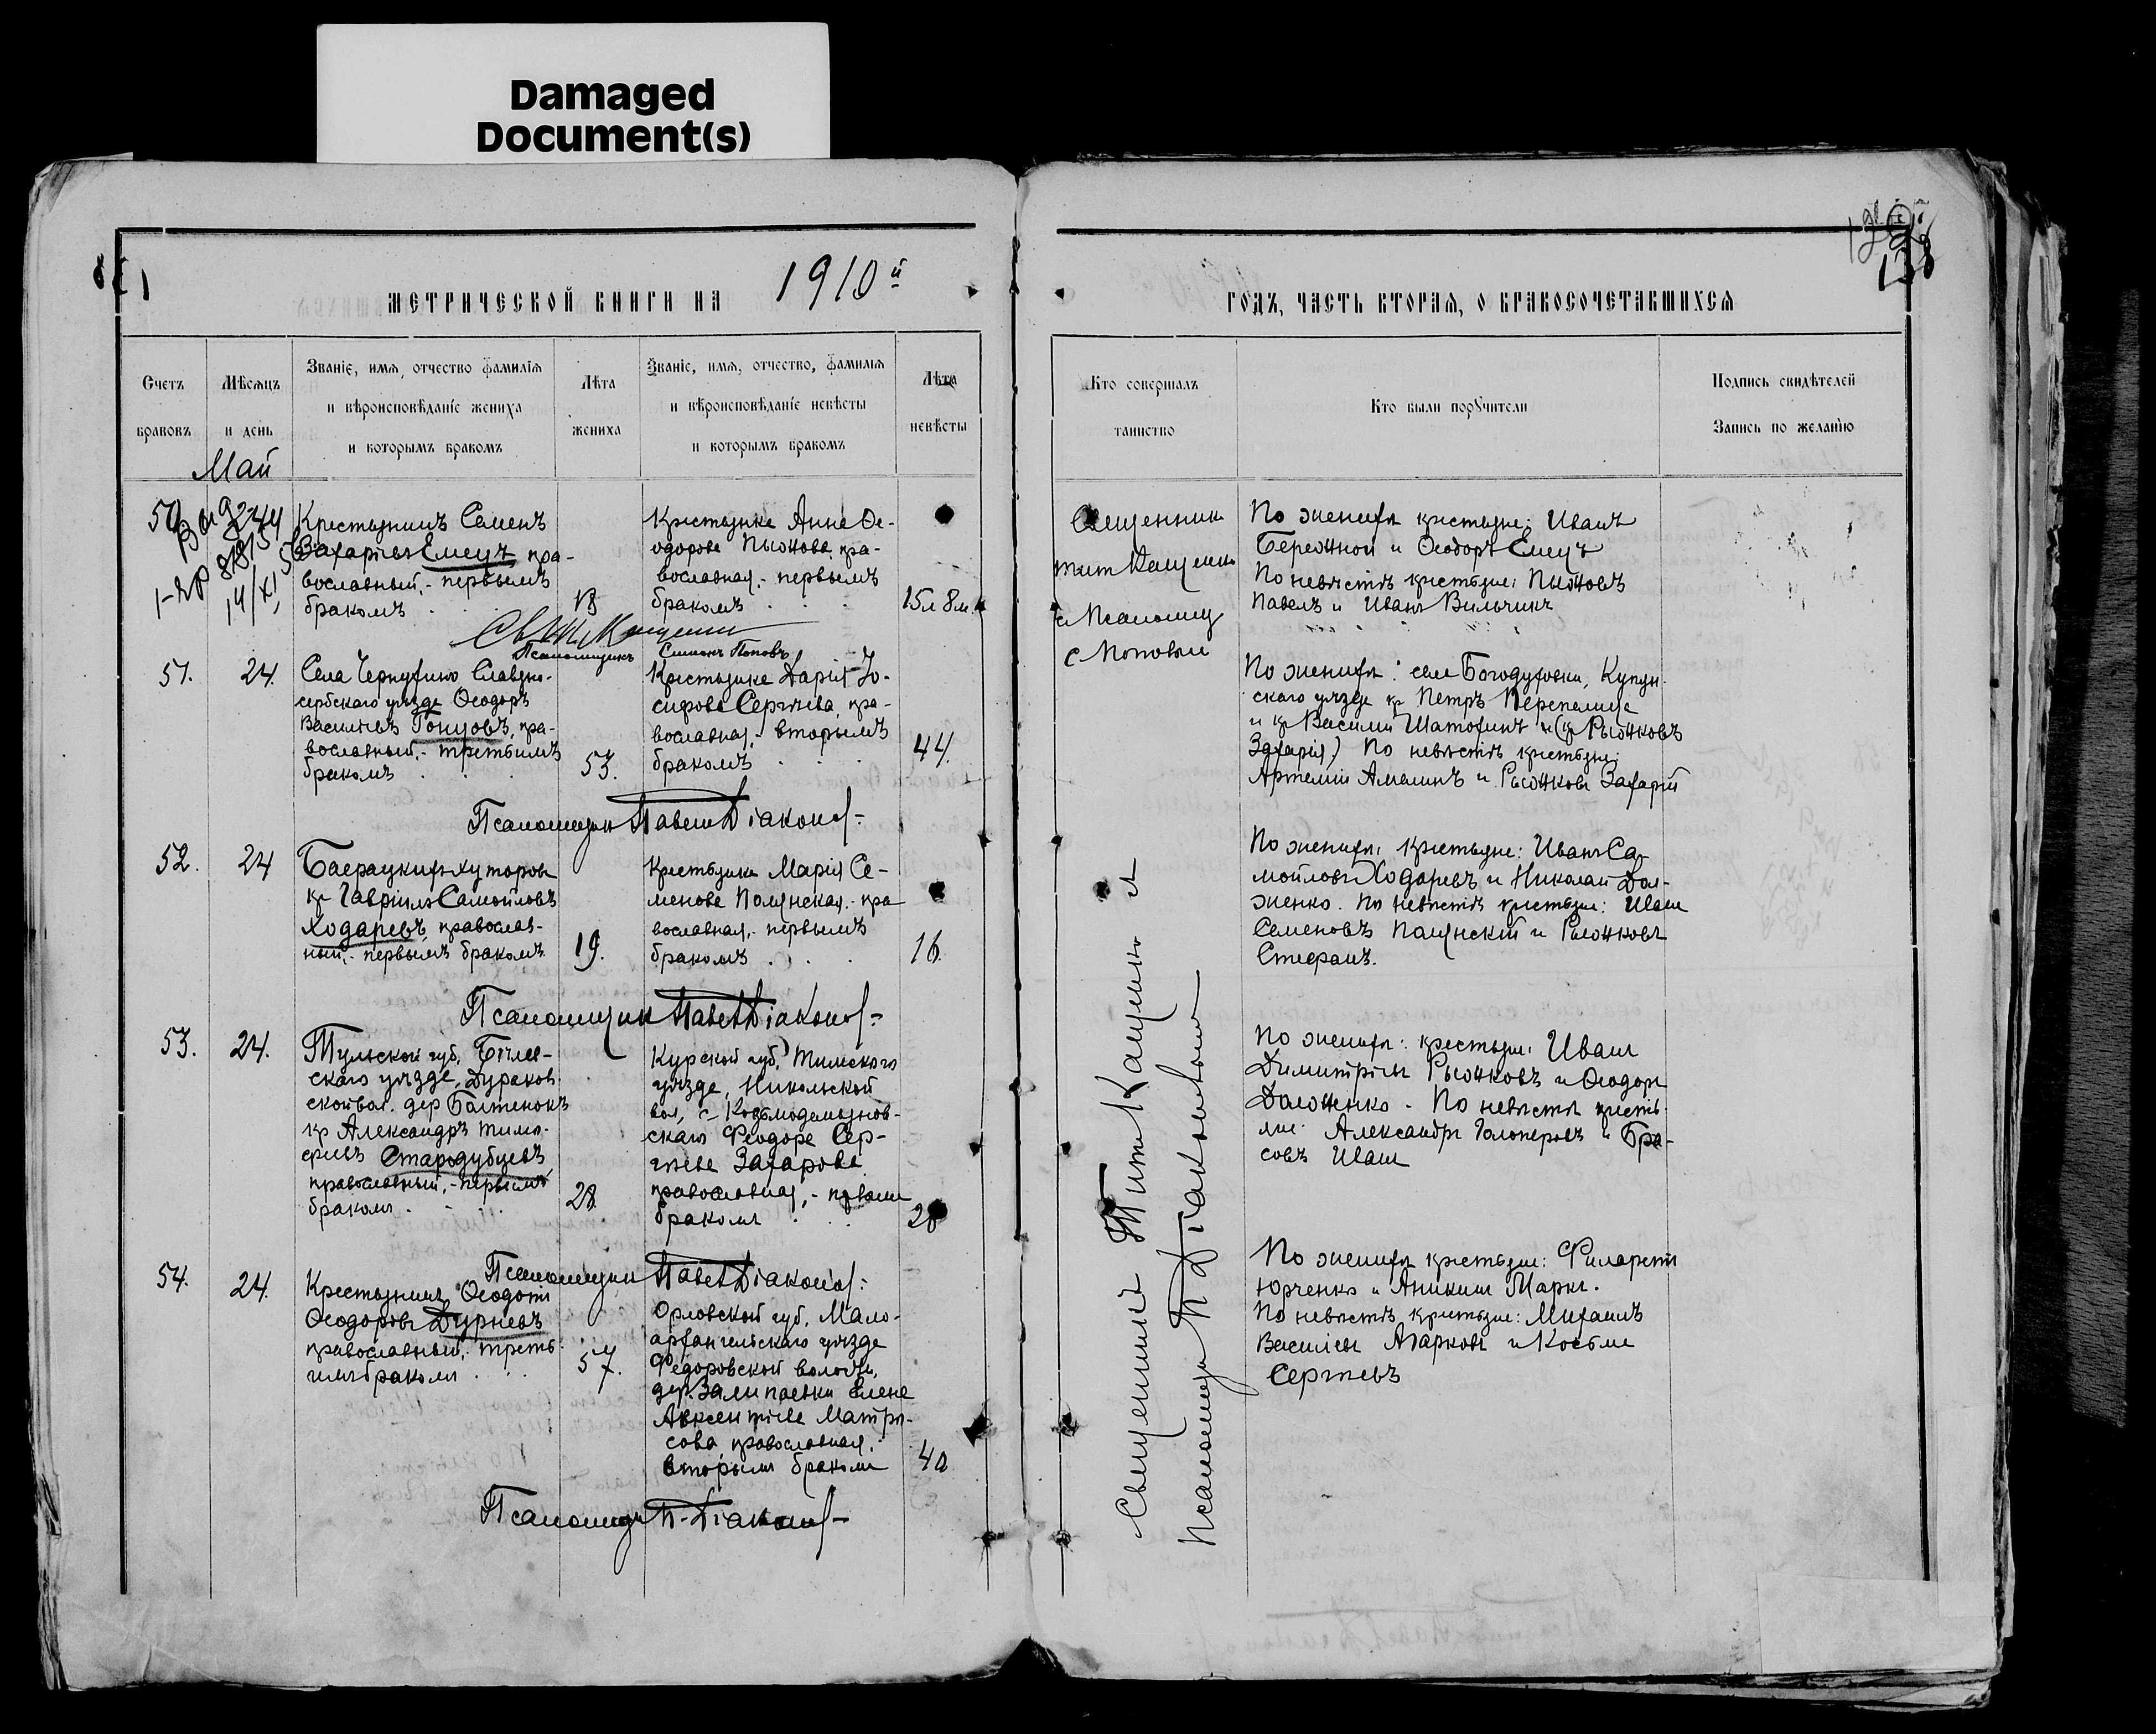 Damaged
Document(s)
МЕТРИЧЕСКОЙ КНИГИ НА 1910й
ГОДЪ, ЧАСТЬ ВТОРАЯ, О БРАКОСОЧЕТАВШИХСЯ
138
Счетъ
браковъ
Мѣсяцъ
и день
Званіе, имя, отчество фамилія
и вѣроисповѣданіе жениха
и которымъ бракомъ
Лѣта
жениха
Званіе, имя, отчество, фамилія
и вѣроисповѣданіе невѣсты
и которымъ бракомъ
Лѣта
невѣсты
Кто совершалъ
таинство
Кто были поручители
Подпись свидѣтелей
Запись по желанію
Май
50
Крестьянинъ Семенъ
Захаріевъ Емецъ, пра-
вославный,- первымъ
бракомъ
18
Крестьянка Анна Ѳе-
одорова Пыжова, пра-
вославная,- первымъ
бракомъ
15л 8м.
Псаломщикъ Симонъ Поповъ
Священник
Тит Кащенко
и Псаломщ
С Поповым
По женихѣ крестьяне: Иванъ
Бережной и Ѳеодоръ Емецъ
По невѣстѣ крестьяне: Пыжовъ
Павелъ и Иванъ Вильчикъ
51.
24.
Села Чернухино Славяно-
сербскаго уѣзда Ѳеодоръ
Васильевъ Гонцовъ, пра-
вославный,- третьимъ
бракомъ
53.
Крестьянка Дарія Іо-
сифова Сергѣева, пра-
вославная,- вторымъ
бракомъ
44.
По женихѣ: села Богодуховки, Купян
скаго уѣзда кр Петръ Перепелица
и кр Василий Шатохинъ и (кр Рыжковъ
Захарія) По невѣстѣ крестьяне:
Артемій Амелинъ и Рыжковъ Захарій
Псаломщик Павел Діаконов-
52.
24
Баерацкихъ хуторовъ
кр Гавріилъ Самойловъ
Ходаревъ, православ-
ный,- первымъ бракомъ
19.
Крестьянка Марія Се-
менова Полянская,- пра
вославная,- первымъ
бракомъ
16
По женихѣ, крестьяне: Иванъ Са-
мойловъ Ходаревъ и Николай Дол-
женко. По невѣстѣ крестьяне: Иван
Семеновъ Полянскій и Рыжковъ
Стефанъ.
Псаломщик Павел Діаконов-
53.
24.
Тульской губ, Бѣлев-
скаго уѣзда, Дураков
ской вол. дер Болтенокъ
кр Александръ Тимо-
феевъ Стародубцевъ
православный,- первымъ
бракомъ
28.
Курской губ, Тимскаго
уѣзда, Никольской
вол, с. Козьмодемьянов-
скаго Феодора Сер-
гѣева Захарова
православная,- первым
бракомъ
По женихѣ: крестьяне: Иван
Димитріевъ Рыжковъ и Ѳеодоръ
Долженко - По невѣстѣ кресть-
яне: Александръ Голоперовъ и Бра-
совъ Иван
Псаломщик Павел Діаконов-
54.
24.
Крестьянинъ Ѳеодотъ
Ѳеодоровъ Дурневъ
православный,- треть-
имъ бракомъ
57.
Орловской губ, Мало-
архангельскаго уѣзда
Федоровской волости,
дер. Залипаевки Елена
Авксентіева Матро-
сова, православная,
вторымъ бракомъ
40
По женихѣ крестьяне: Филаретъ
Юрченко и Аникинъ Маркъ.
По невѣстѣ крестьяне: Михаилъ
Васильевъ Азарковъ и Косьма
Сергѣевъ
Псаломщик П. Діаконов-
Священникъ Титъ Кащенко и
Псаломщик П Діаконовым